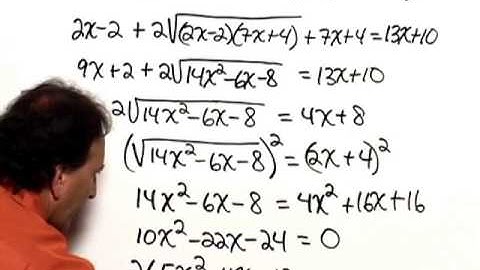 2x-2 + 2√(2x-2)(7x+4) + 7x+4 = 13x+10
9x+2 + 2√14x²-6x-8 = 13x+10
2√14x²-6x-8 = 4x+8
(√14x²-6x-8)² = (2x+4)²
14x²-6x-8 = 4x²+16x+16
10x²-22x-24 = 0